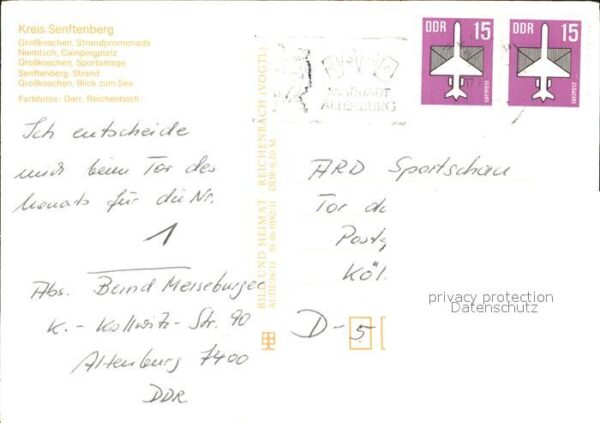 Kreis Senftenberg
Großkoschen, Strandpromenade
Niemtsch, Campingplatz
Großkoschen, Sportanlage
Senftenberg, Strand
Großkoschen, Blick zum See
Farbfotos: Darr, Reichenbach
Ich entscheide
mich beim Tor des
Monats für die Nr.
1
Abs. Bernd Merseburger
K.-Kollwitz-Str. 90
Altenburg 7400
DDR
BILD UND HEIMAT REICHENBACH (VOGTL)
DDR 0,20 M
SKATSTADT
ALTENBURG
DDR 15
LUFTPOST
DDR 15
LUFTPOST
ARD Sportschau
Tor d
Post
Köl
D-5
privacy protection
Datenschutz